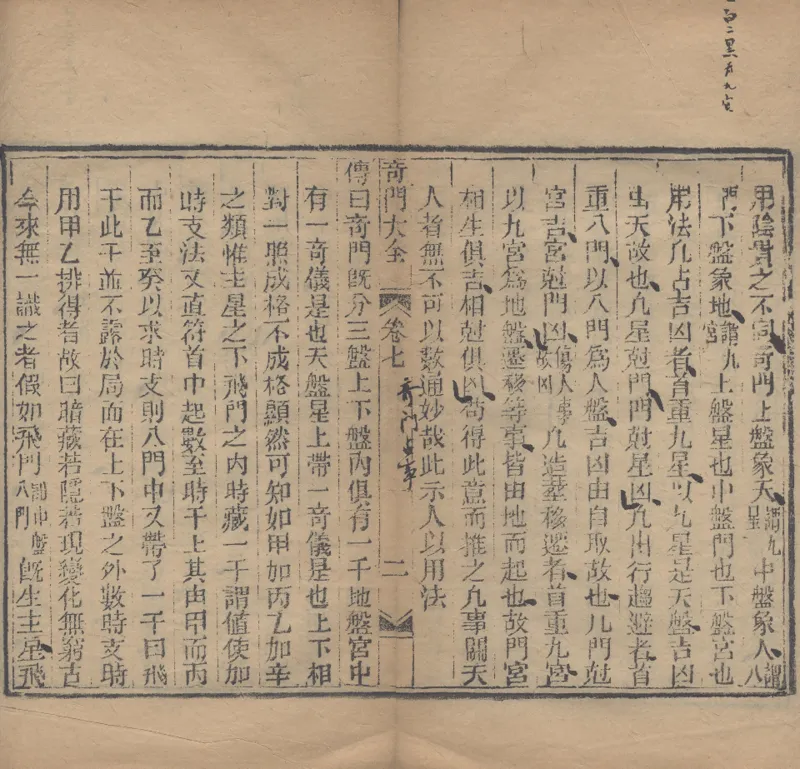 用陰貴之不同奇門上盤象天謂九星中盤象人謂八
門下盤象地謂九宮上盤星也中盤門也下盤宮也
用法凡占吉凶者首重九星以九星是天盤吉凶
出天故也凡星尅門門尅星凶凡出行趨避者首
重八門以八門爲人盤吉凶由自取故也凡門尅
宮吉宮尅門凶傷人事故凶凡造葬移遷者首重九宮
以九宮爲地盤遷移等事皆由地而起也故門宮
相生俱吉相尅俱凶苟得此意而推之凡事關天
人者無不可以數通妙哉此示人以用法
奇門大全 卷七 奇門 二
傳曰奇門旣分三盤上下盤內俱有一千地盤宮中
有一奇儀是也天盤星上帶一奇儀是也上下相
對一照成格不成格顯然可知如甲加丙乙加辛
之類惟主星之下飛門之內時藏一干謂值使加
時支法又直符首中起數至時干上其由甲而丙
而乙至癸以求時支則八門中又帶了一干曰飛
干此干並不露於局而在上下盤之外數時支時
用甲乙排得者故曰暗藏若隱若現變化無窮古
今來無一識之者假如飛門謂中盤八門旣生主星飛